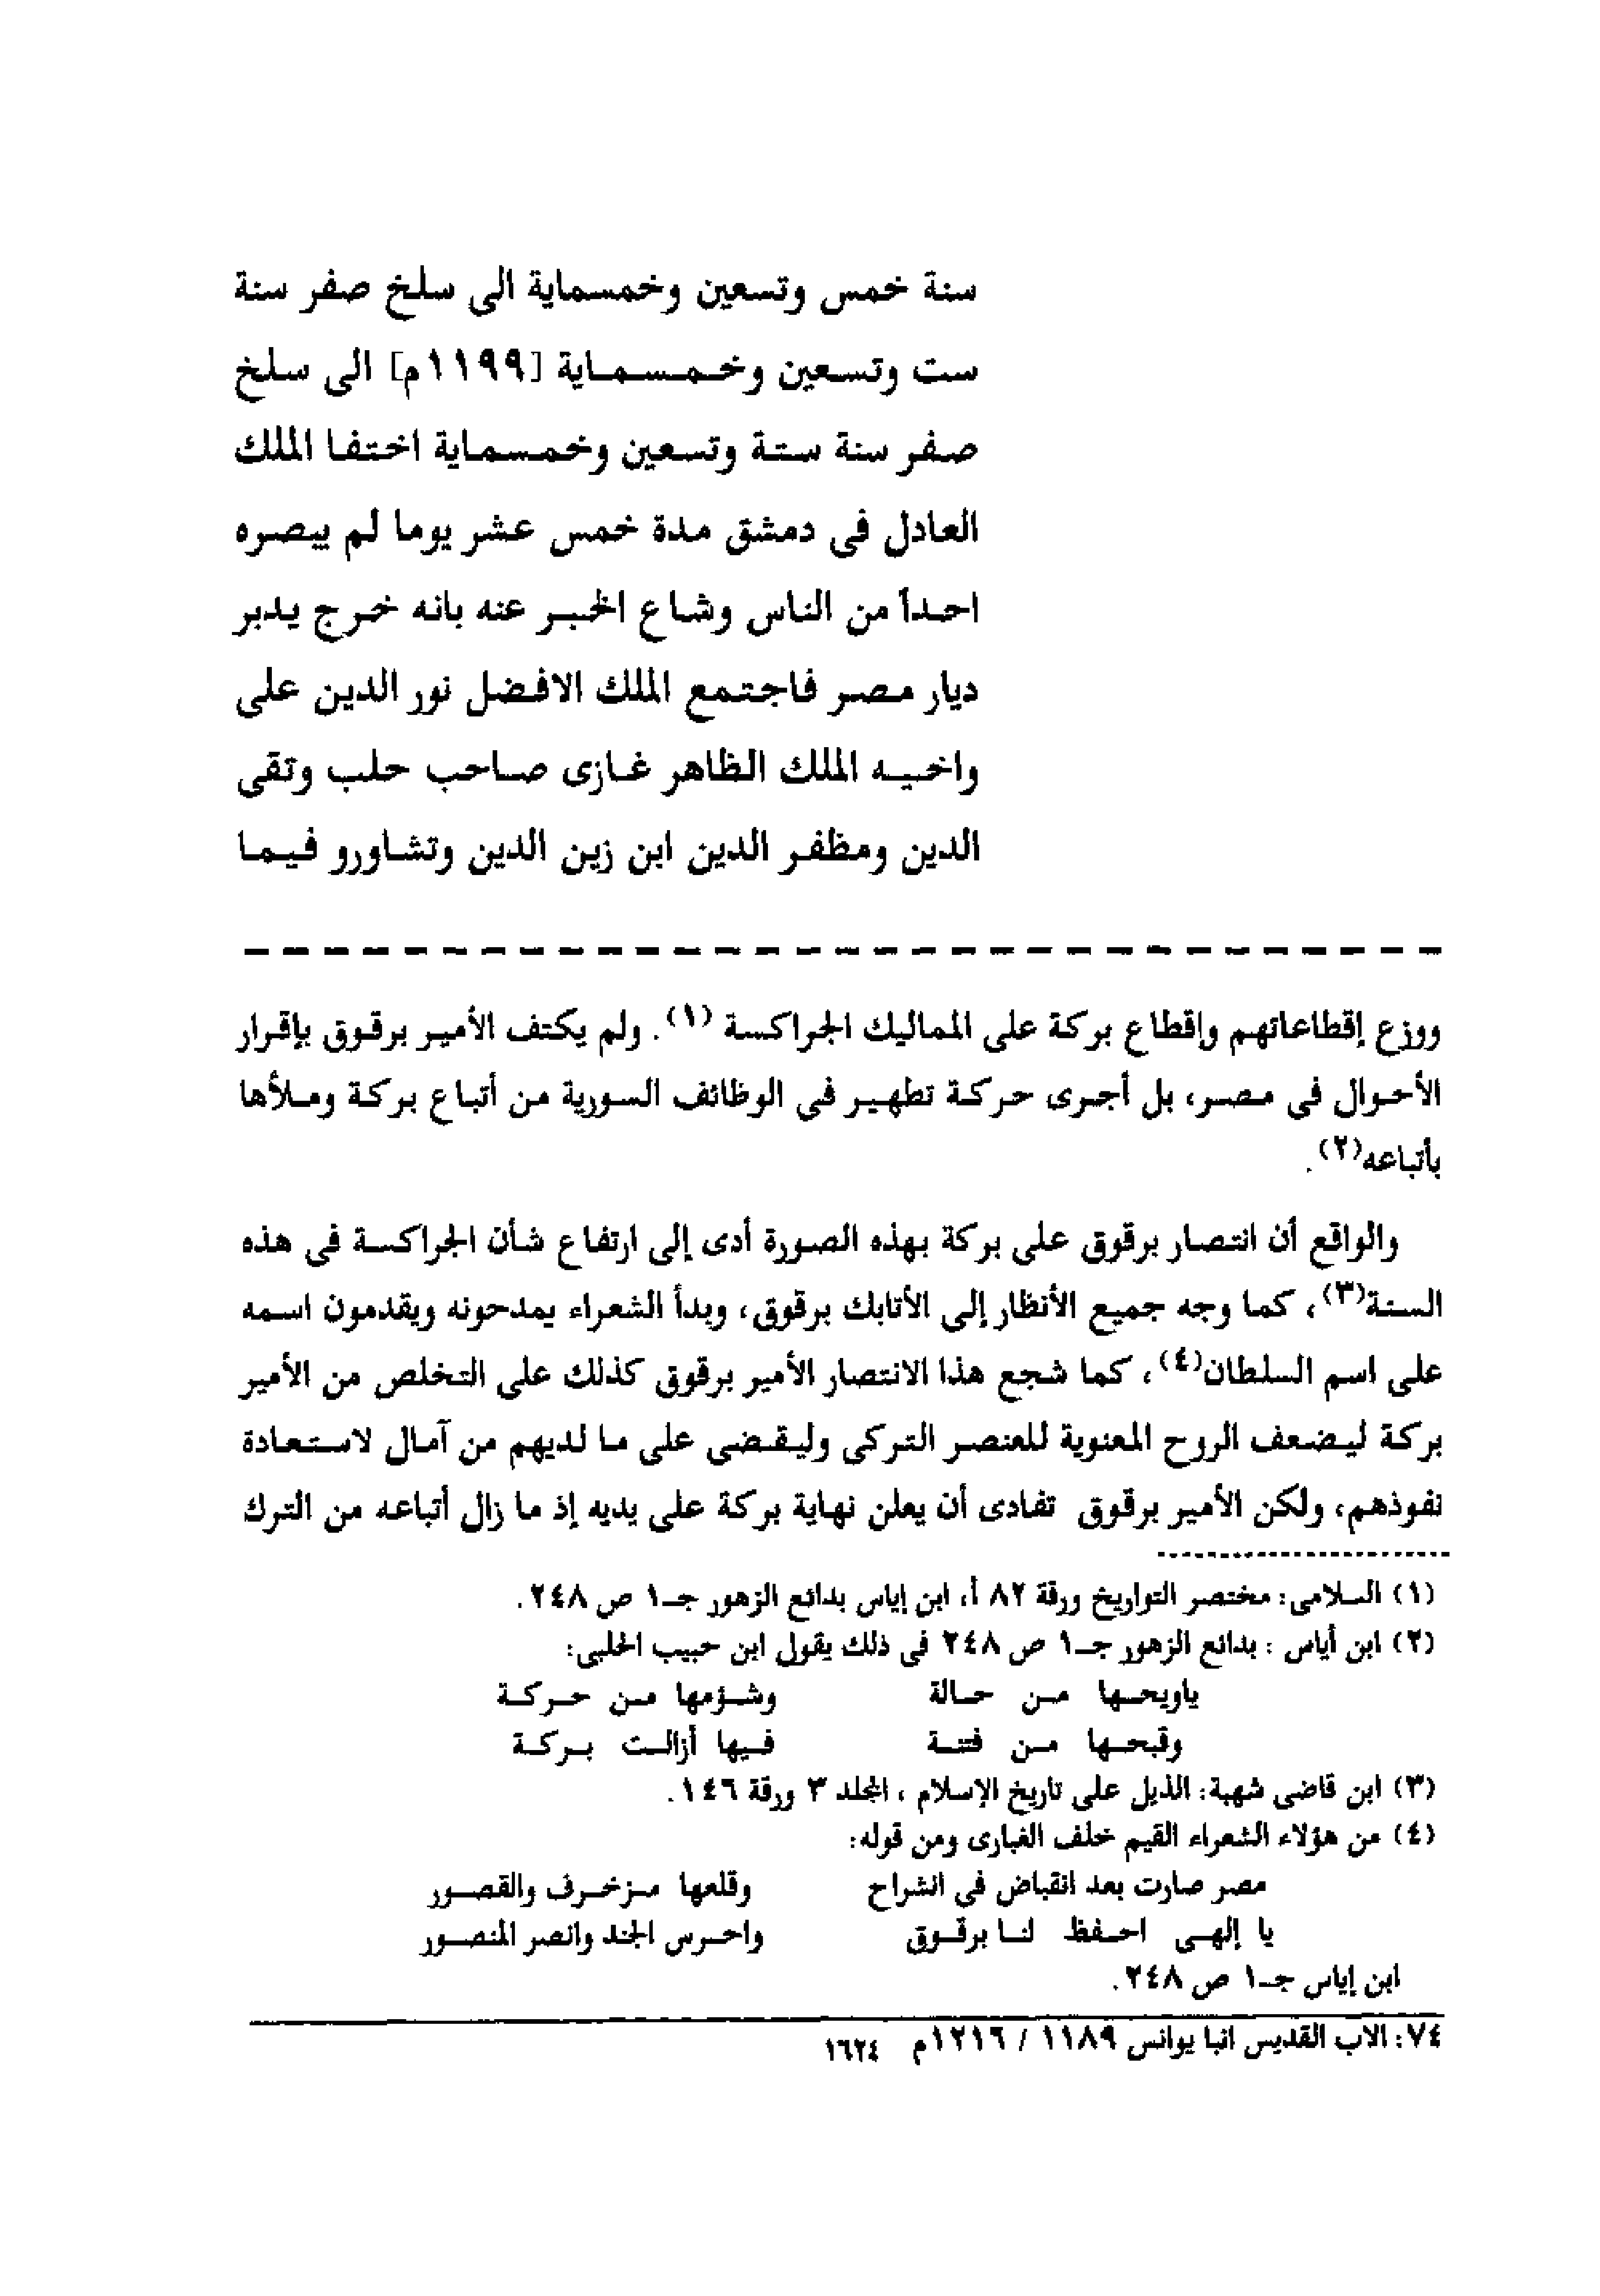 سنة خمس وتسعين وخمسماية الى سلخ صفر سنة
ست وتسعين وخمسماية [١١٩٩م] الى سلخ
صفر سنة ستة وتسعين وخمسماية اختفا الملك
العادل فى دمشق مدة خمس عشر يوما لم ييصره
احداً من الناس وشاع الخبر عنه بانه خرج يدبر
ديار مصر فاجتمع الملك الافضل نور الدين على
واخيه الملك الظاهر غازى صاحب حلب وتقى
الدين ومظفر الدين ابن زين الدين وتشاورو فيما
ووزع إقطاعاتهم وإقطاع بركة على المماليك الجراكسة (١). ولم يكتف الأمير برقوق بإقرار
الأحوال فى مصر، بل أجرى حركة تطهير فى الوظائف السورية من أتباع بركة وملأها
بأتباعه(٢).
والواقع أن انتصار برقوق على بركة بهذه الصورة أدى إلى ارتفاع شأن الجراكسة فى هذه
السنة(٣)، كما وجه جميع الأنظار إلى الأتابك برقوق، وبدأ الشعراء يمدحونه ويقدمون اسمه
على اسم السلطان(٤)، كما شجع هذا الانتصار الأمير برقوق كذلك على التخلص من الأمير
بركة ليضعف الروح المعنوية للعنصر التركى وليقضى على ما لديهم من آمال لاستعادة
نفوذهم، ولكن الأمير برقوق تفادى أن يعلن نهاية بركة على يديه إذ ما زال أتباعه من الترك
(١) السلامى: مختصر التواريخ ورقة ٨٢ أ، ابن إياس بدائع الزهور جـ١ ص ٢٤٨.
(٢) ابن أياس : بدائع الزهور جـ١ ص ٢٤٨ فى ذلك يقول ابن حبيب الحلبى:
ياويحها من حالة وشؤمها من حركة
وقبحها من فتنة فيها أزالت بركة
(٣) ابن قاضى شهبة: الذيل على تاريخ الإسلام ، المجلد ٣ ورقة ١٤٦.
(٤) من هؤلاء الشعراء القيم خلف الغبارى ومن قوله:
مصر صارت بعد انقباض فى انشراح وقلعها مزخرف والقصور
يا إلهى احفظ لنا برقوق واحرس الجند وانصر المنصور
ابن إياس جـ١ ص ٢٤٨.
٧٤: الاب القديس انبا يوانس ١١٨٩ / ١٢١٦م ١٦٢٤